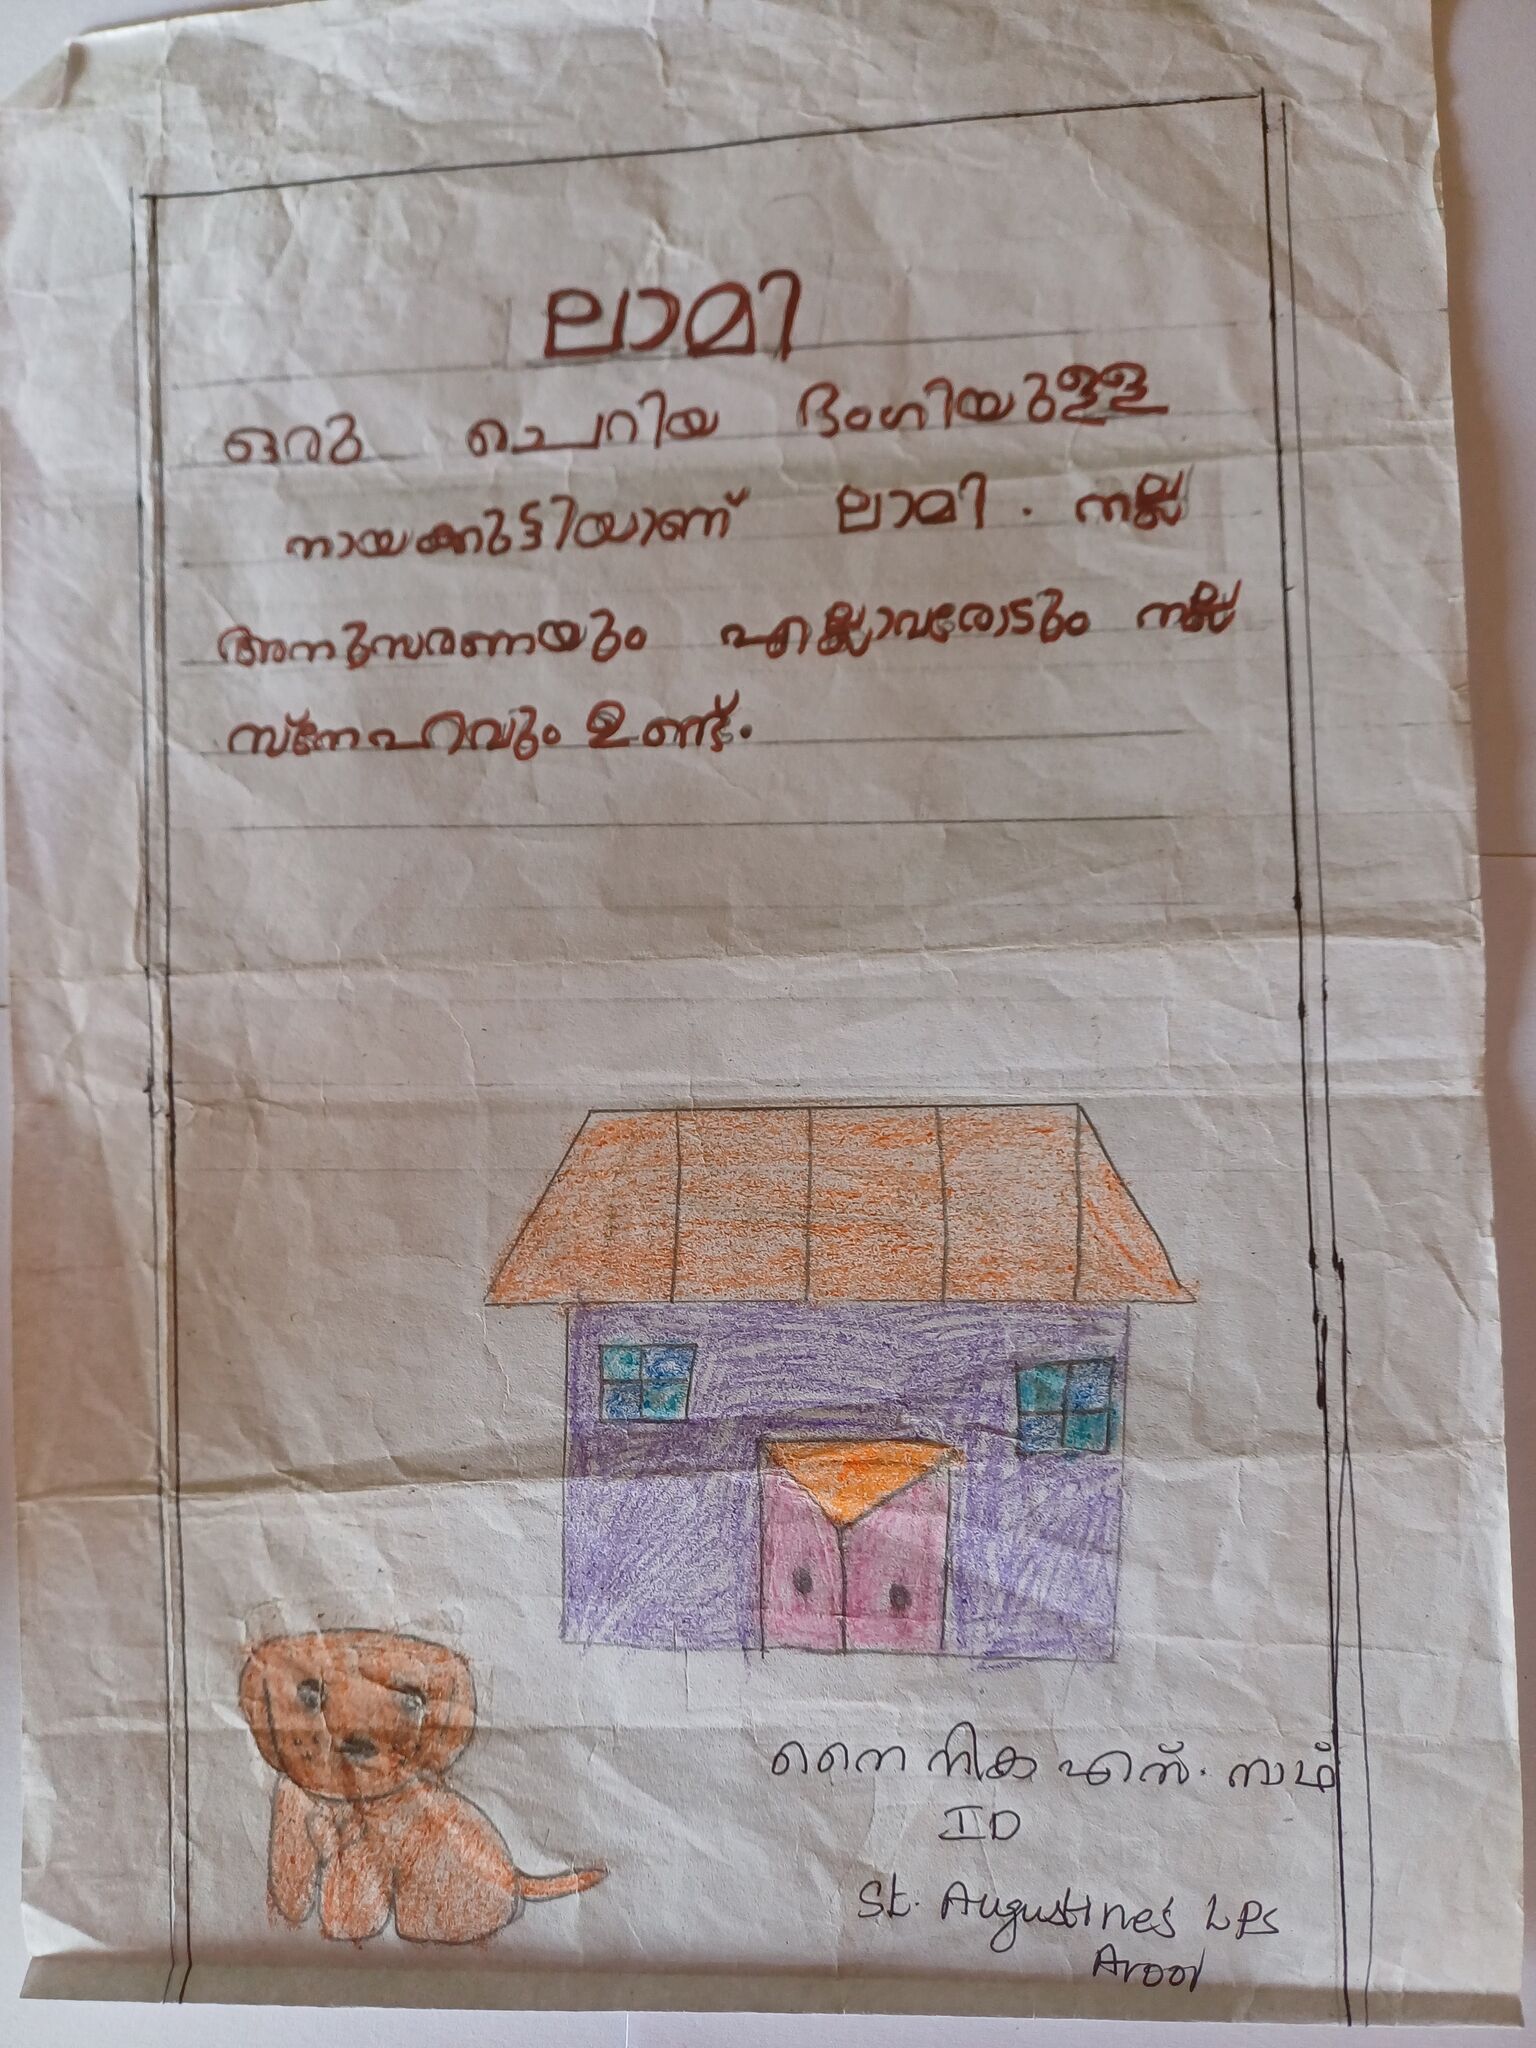 ലാമി
ഒരു ചെറിയ ഭംഗിയുള്ള
നായക്കുട്ടിയാണ് ലാമി. നല്ല
അനുസരണയും എല്ലാവരോടും നല്ല
സ്നേഹവും ഉണ്ട്.
നൈനിക എസ്.
II D
St. Augustine's LPS
Aroor